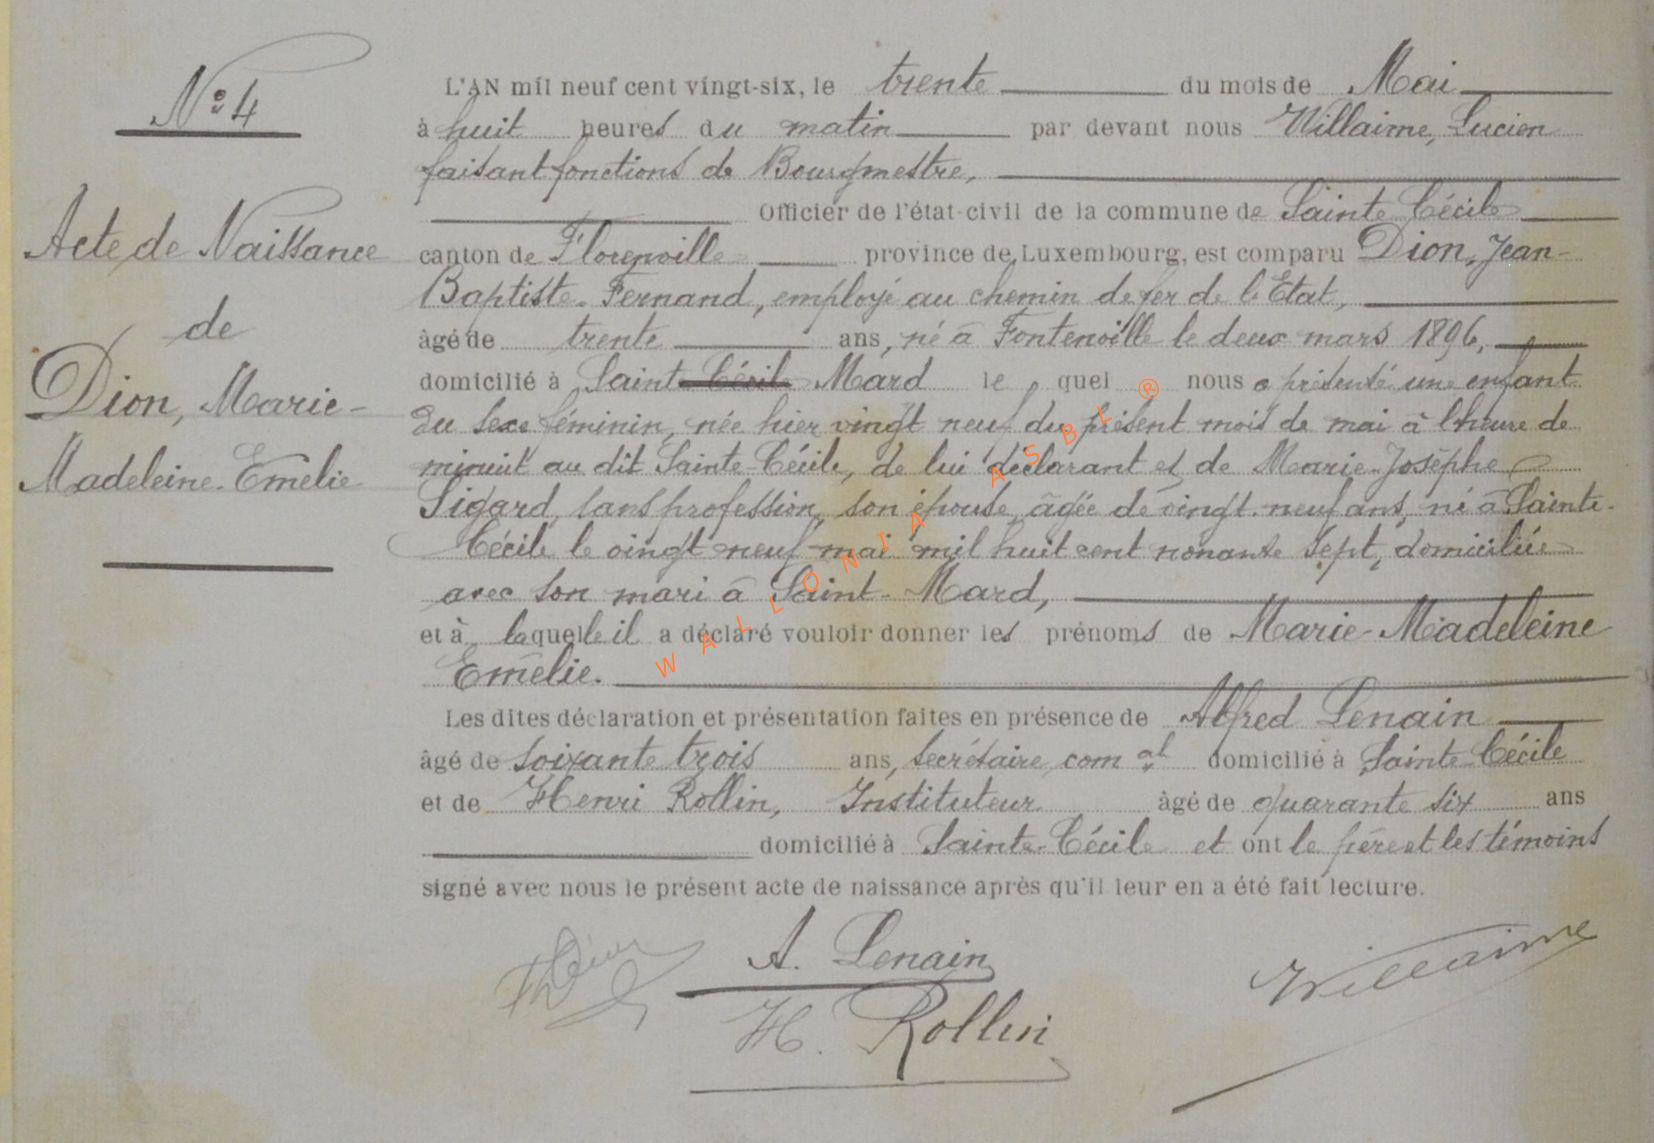 Nº 4
Acte de Naissance
de
Dion, Marie-
Madeleine-Emelie
L'AN mil neuf cent vingt-six, le trente du mois de Mai
à huit heures du matin par devant nous Willaime, Lucien
faisant fonctions de Bourgmestre,
Officier de l'état-civil de la commune de Sainte Cécile
canton de Florenville province de Luxembourg, est comparu Dion, Jean-
Baptiste-Fernand, employé au chemin de fer de l'Etat,
âgé de trente ans, né à Fontenoille le deux mars 1896,
domicilié à Saint Cécile Mard le quel nous a présenté une enfant
du sexe féminin, née hier vingt neuf du présent mois de mai à l'heure de
minuit au dit Sainte-Cécile, de lui déclarant et de Marie-Josèphe
Sigard, sans profession, son épouse, âgée de vingt-neuf ans, né à Sainte-
Cécile le vingt neuf mai mil huit cent nonante sept, domiciliée
avec son mari à Saint-Mard,
et à laquelle il a déclaré vouloir donner les prénoms de Marie-Madeleine
Emelie.
Les dites déclaration et présentation faites en présence de Alfred Lenain
âgé de soixante trois ans, secrétaire comal domicilié à Sainte-Cécile
et de Henri Rollin, Instituteur âgé de quarante six ans
domicilié à Sainte-Cécile et ont le père et les témoins
signé avec nous le présent acte de naissance après qu'il leur en a été fait lecture.
A. Lenain
H. Rollin
Willaime
WALLONIA ASBL ®